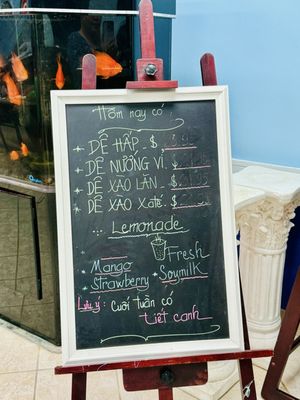 Hôm nay có
DÊ HẤP - $
DÊ NƯỚNG VỈ $
DÊ XÀO LĂN $
DÊ XÀO Xaté. $
Lemonade
Fresh
Mango
Strawberry Soymilk
Lưu ý: Cuối tuần có
Tiết canh